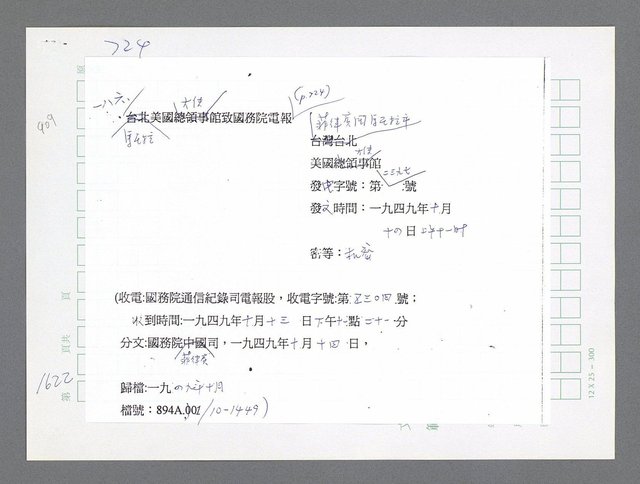 724
一八六、
大使
(p.724)
台北美國總領事館致國務院電報
909
馬尼拉
菲律賓國馬尼拉市
台灣台北
大使
美國總領事館
二三九七
發電字號：第 號
發文時間：一九四九年十月
十四日上午十一時
密等：機密
(收電:國務院通信紀錄司電報股，收電字號:第五三〇四號；
收到時間:一九四九年十月十三日下午十一點二十一分
分文:國務院中國司，一九四九年十月十四日，
菲律賓
歸檔:一九四九年十月
檔號：894A.00/10-1449)
1622
第
頁共
頁
12 X 25 - 300